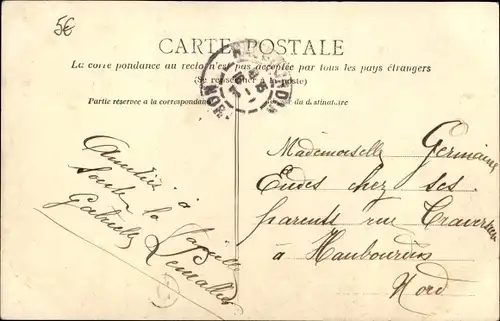 5€
CARTE POSTALE
La correspondance au recto n'est pas acceptée par tous les pays étrangers
(Se renseigner à la poste)
Partie réservée à la correspondance
du destinataire
HAUBOURDIN
NORD
Amitiés à
toute la famille
Gabrielle
Mademoiselle Germaine
Eudes chez ses
parents rue Traversière
à Haubourdin
Nord